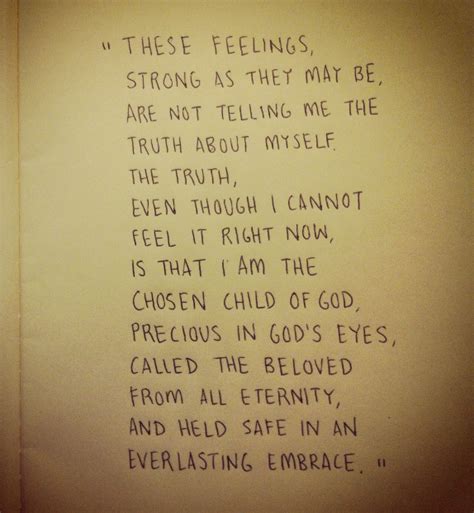 "THESE FEELINGS,
STRONG AS THEY MAY BE,
ARE NOT TELLING ME THE
TRUTH ABOUT MYSELF.
THE TRUTH,
EVEN THOUGH I CANNOT
FEEL IT RIGHT NOW,
IS THAT I AM THE
CHOSEN CHILD OF GOD,
PRECIOUS IN GOD'S EYES,
CALLED THE BELOVED
FROM ALL ETERNITY,
AND HELD SAFE IN AN
EVERLASTING EMBRACE."